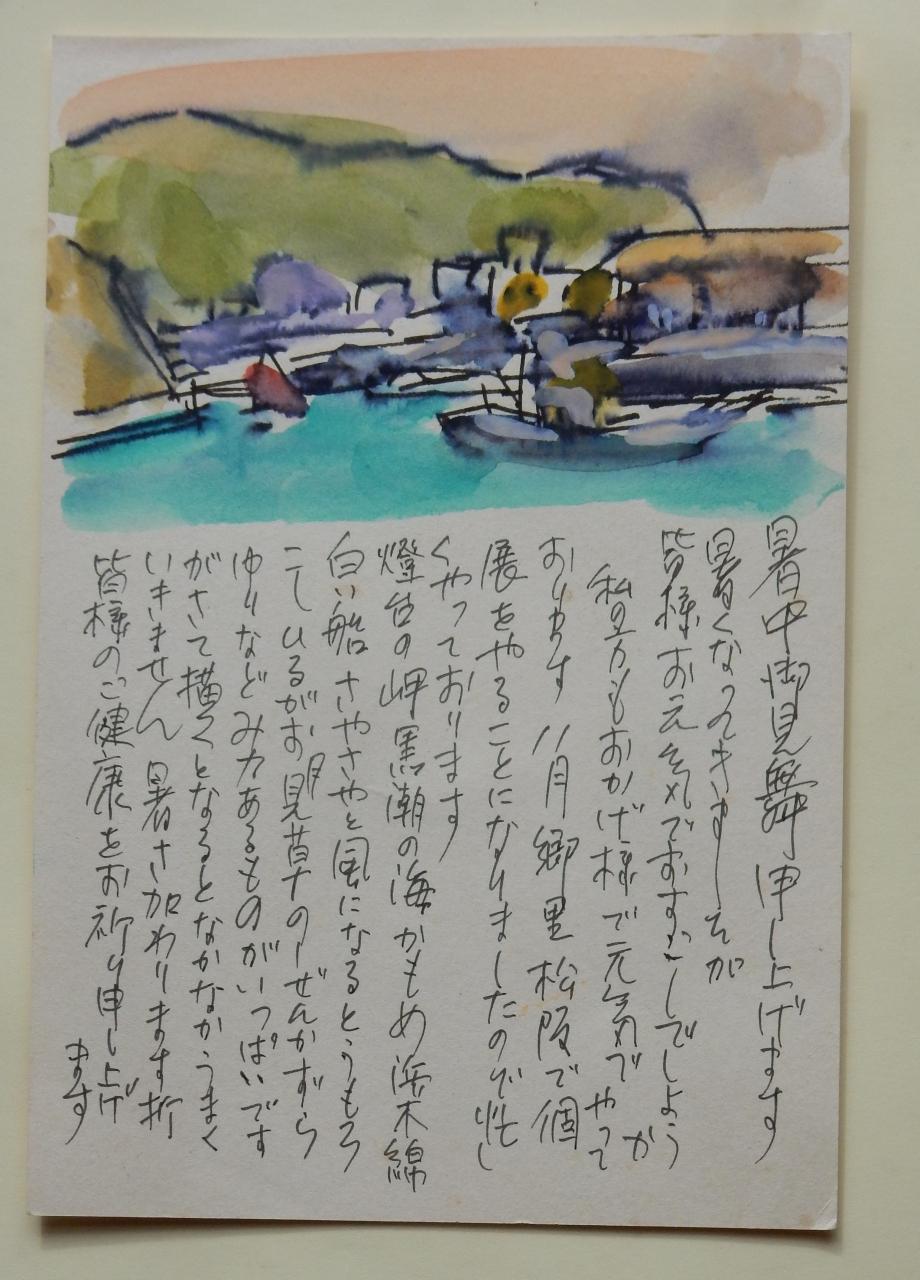 暑中御見舞申し上げます
暑くなってきましたが
皆様お元気でおすごしでしょうか
私の方もおかげ様で元気でやって
おります 11月郷里松阪で個
展をやることになりましたので忙し
くやっております
燈台の岬黒潮の海かもめ浜木綿
白い船さやさやと風になるとうもろ
こしひるがお月見草のーぜんかずら
ゆりなどみ力あるものがいっぱいです
がさて描くとなるとなかなかうまく
いきません 暑さ加わります折
皆様のご健康をお祈り申し上げ
ます